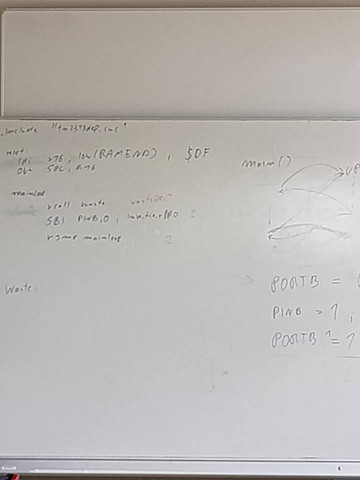 .include "tn2313def.inc"
reset
ldi r16, low(RAMEND) ; $DF
out SPL, r16
mainloop
rcall waste
SBI PINB,0 ; 2
rjmp mainloop 2
Waste:
main()
UP
PORTB =
PINB = 1 ;
PORTB ^= 1